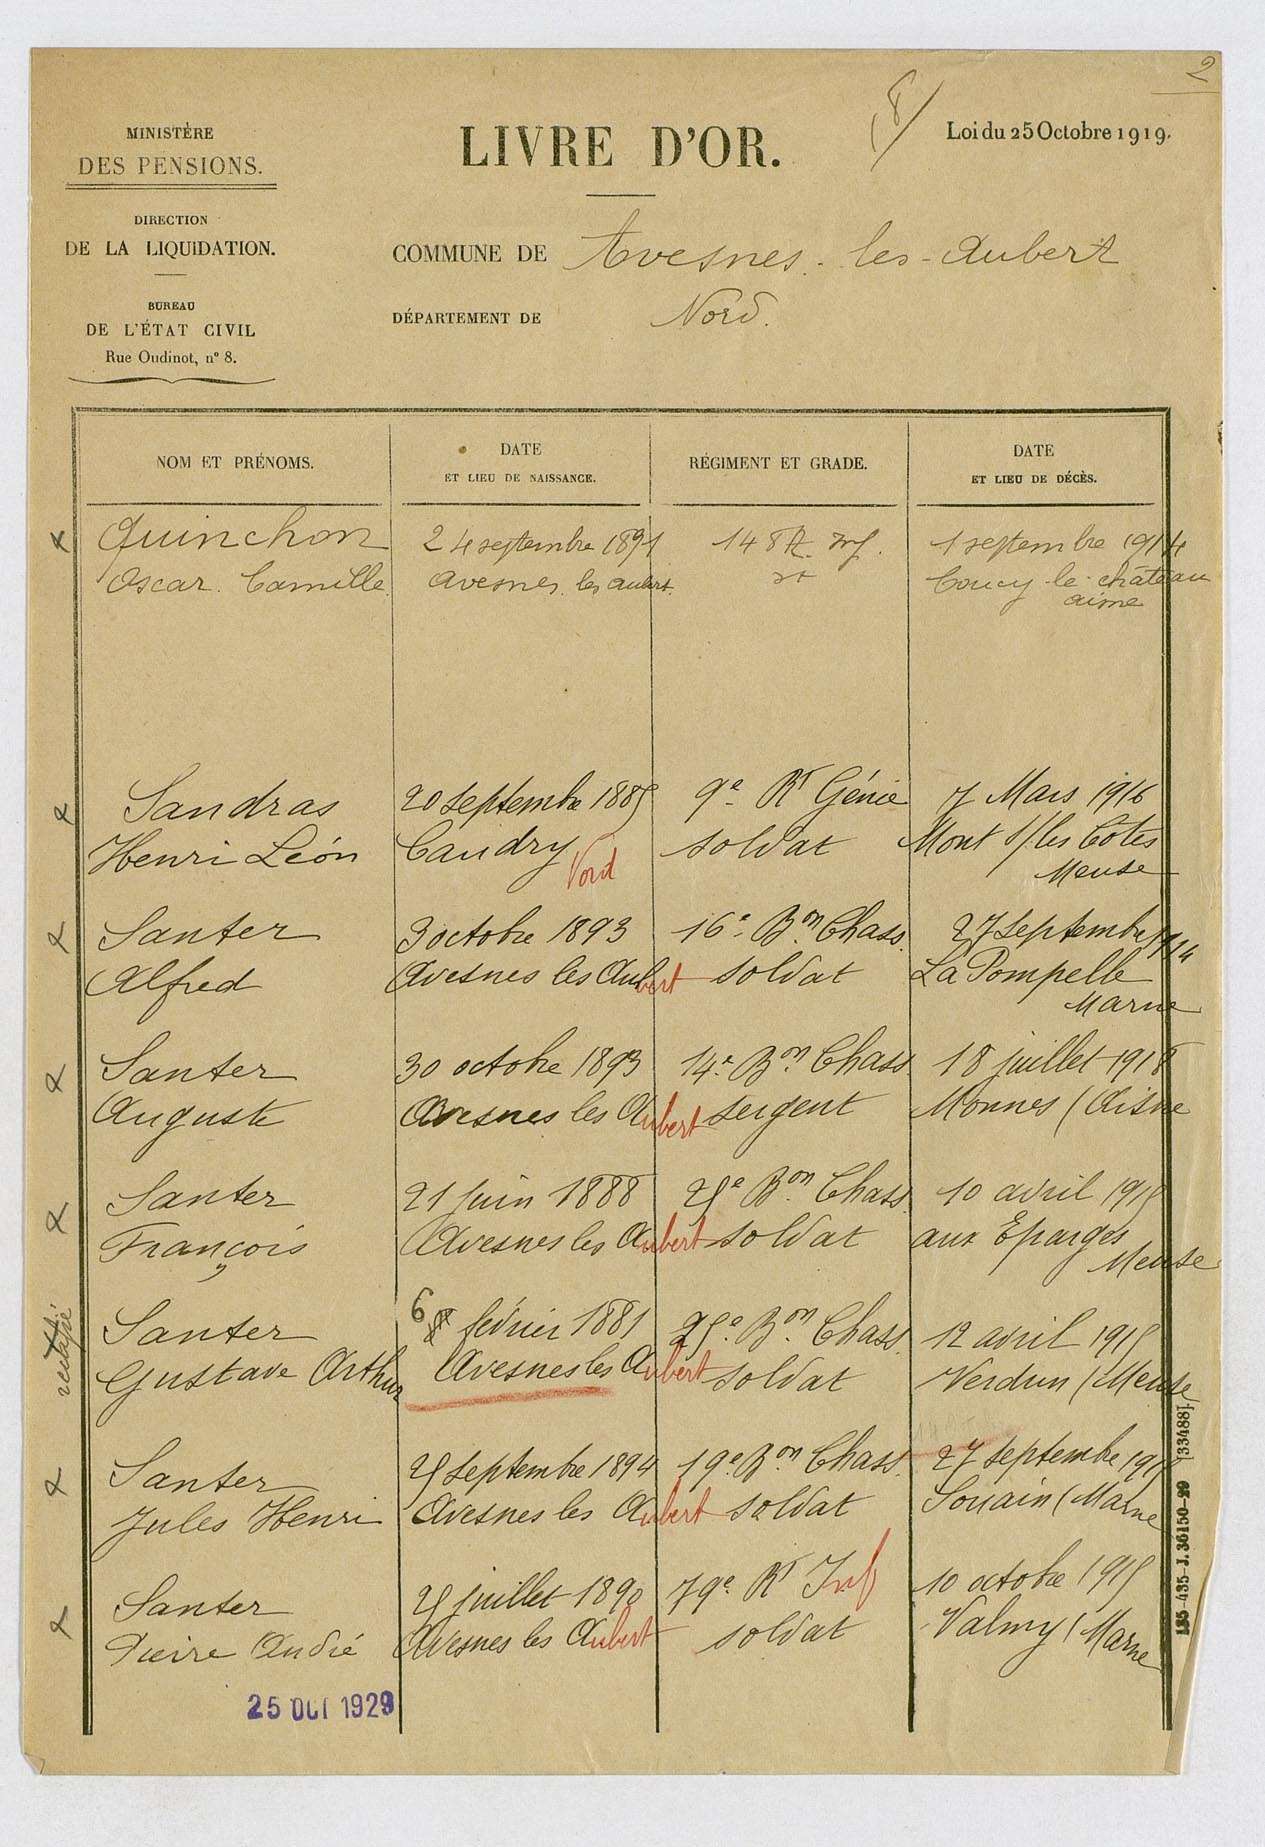 2
(8)
MINISTÈRE
DES PENSIONS.
DIRECTION
DE LA LIQUIDATION.
BUREAU
DE L'ÉTAT CIVIL
Rue Oudinot, n° 8.
LIVRE D'OR.
Loi du 25 Octobre 1919.
COMMUNE DE Avesnes-les-Aubert
DÉPARTEMENT DE Nord.
NOM ET PRÉNOMS.
DATE
ET LIEU DE NAISSANCE.
RÉGIMENT ET GRADE.
DATE
ET LIEU DE DÉCÈS.
Quinchon 24 septembre 1891 148 Rt. Inf. 1 septembre 1914
Oscar Camille Avesnes les Aubert. st Coucy-le-château
aisne
Sandras 20 septembre 1885 9e Rt Génie 7 Mars 1916
Henri Léon Caudry Nord soldat Mont s/les Cotes
Meuse
Santer 3 octobre 1893 16e Bon Chass. 27 septembre 1914
Alfred Avesnes les Aubert soldat La Pompelle
Marne
Santer 30 octobre 1893 14e Bon Chass. 18 juillet 1918
Auguste Avesnes les Aubert sergent Monnes (Aisne
Santer 21 juin 1888 25e Bon Chass. 10 avril 1915
François Avesnes les Aubert soldat aux Eparges
Meuse
Santer 6 février 1881 25e Bon Chass. 12 avril 1915
Gustave Arthur Avesnes les Aubert soldat Verdun (Meuse
Santer 25 septembre 1894 19e Bon Chass. 27 septembre 1915
Jules Henri Avesnes les Aubert soldat Souain (Marne
Santer 25 juillet 1890 79e Rt Inf 10 octobre 1915
Pierre André Avesnes les Aubert soldat Valmy (Marne
25 OCT 1929
135-435-J. 36150-29 [33488].